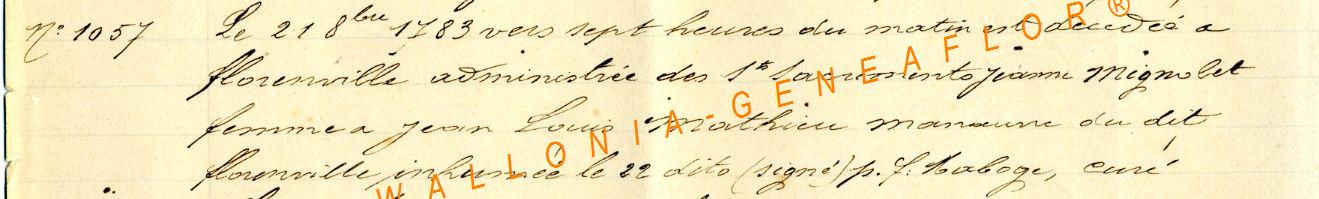 N° 1057 Le 21 8bre 1783 vers sept heures du matin est décédée a
florenville administrée des Sts Sacrements Jeanne Mignolet
femme a Jean Louis Mathieu manœuvre du dit
florenville, inhumée le 22 dito (signé) p. f. Maboge, curé
WALLONIA-GENEAFLOR®